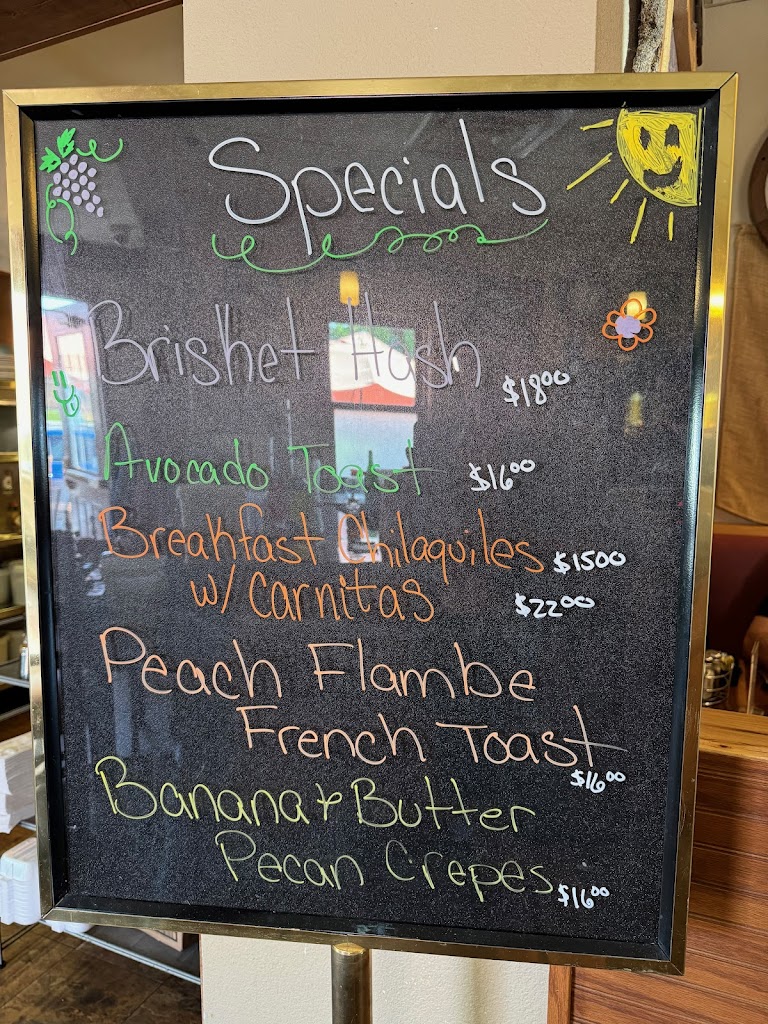 Specials
Brisket Hash $1800
Avocado Toast $1600
Breakfast Chilaquiles $1500
w/ Carnitas $2200
Peach Flambe
French Toast
$1600
Banana & Butter
Pecan Crepes $1600